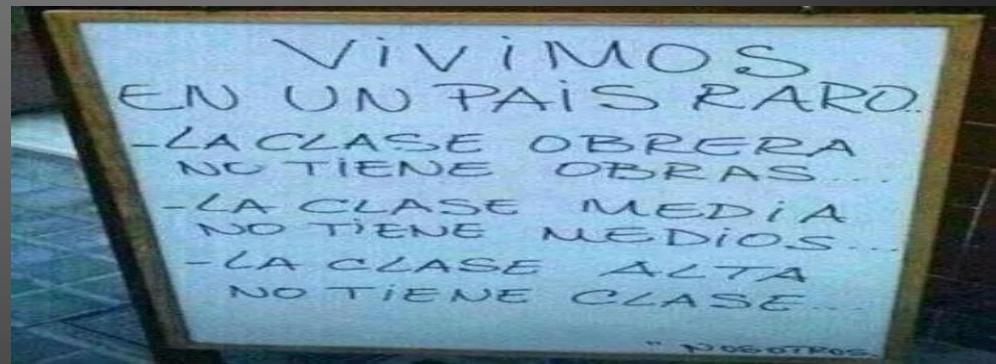 ViViMOS
EN UN PAiS RARO..
-LA CLASE OBRERA
NO TiENE OBRAS....
-LA CLASE MEDiA
NO TiENE MEDiOS...
-LA CLASE ALTA
NO TiENE CLASE...
" NOSOTROS